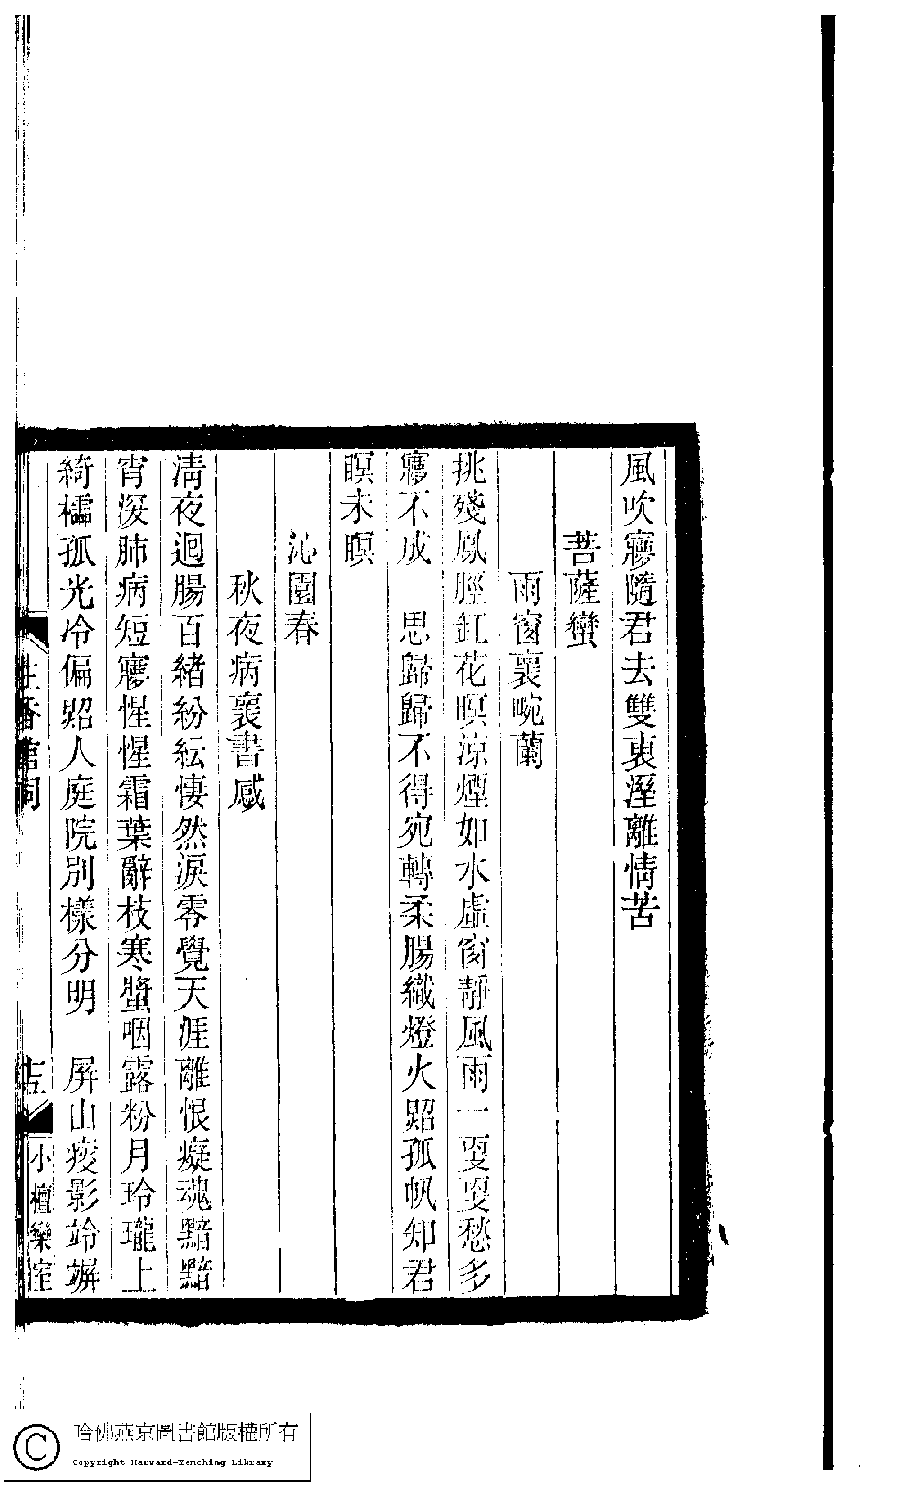 風吹㝱隨君去雙褎溼離情苦
菩薩蠻
雨窗襄畹蘭
挑殘鳳脛釭花暝涼煙如水虛窗靜風雨一叓叓愁多
㝱不成　思歸歸不得宛轉柔腸織燈火照孤帆知君
瞑未瞑
沁園春
秋夜病襄書感
淸夜迴腸百緒紛紜悽然淚零覺天涯離恨癡魂黯黯
宵深肺病短㝱惺惺霜葉辭枝寒螿咽露粉月玲瓏上
綺櫺孤光冷偏照人庭院別樣分明　屏山瘦影竛竮
生香館詞
十五
小檀欒室
哈佛燕京圖書館版權所有
Copyright Harvard-Yenching Library